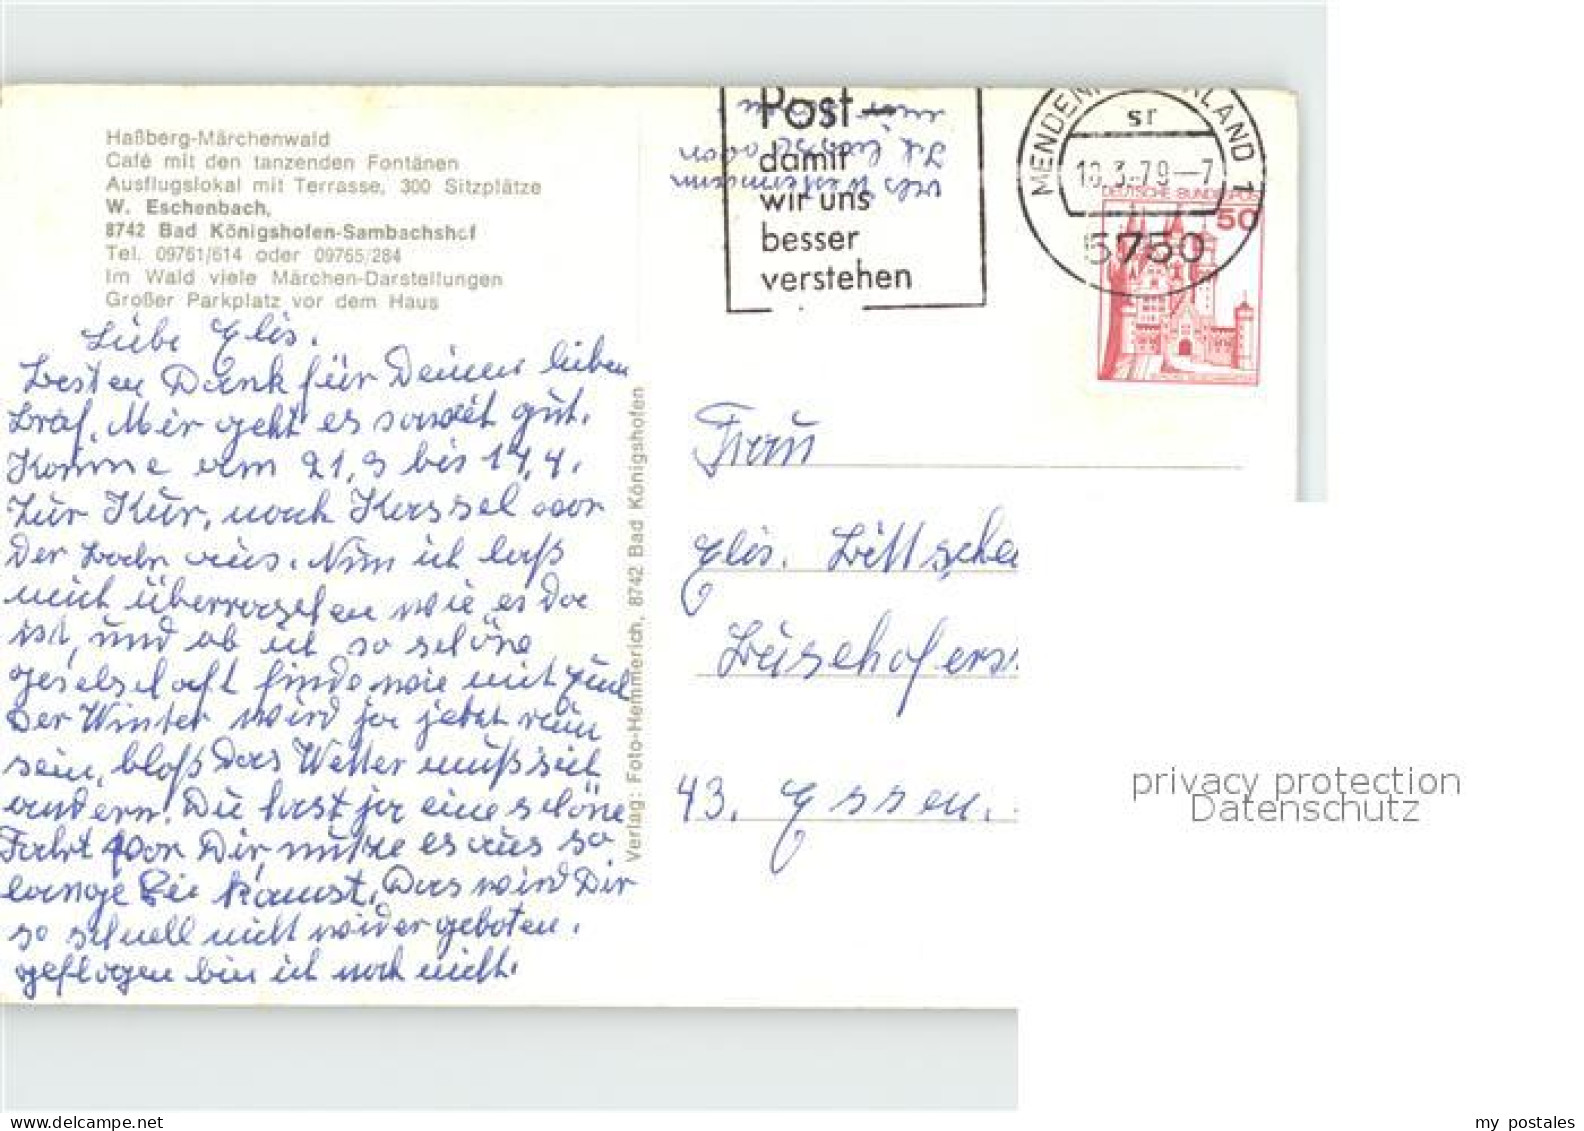 Haßberg-Märchenwald
Café mit den tanzenden Fontänen
Ausflugslokal mit Terrasse, 300 Sitzplätze
W. Eschenbach,
8742 Bad Königshofen-Sambachshof
Tel. 09761/614 oder 09765/284
Im Wald viele Märchen-Darstellungen
Großer Parkplatz vor dem Haus
Liebe Elis.
Besten Dank für Deinen lieben
Braf. Mir geht es soweit gut.
Komme am 21,3 bis 14,4.
Zur Kur, nach Kassel von
der Bahn aus. Nun ich laß
mich überraschen wie es da
ist, und ob ich so schöne
geselschaft finde wie mit
Der Winter wird ja jetzt
sein, bloß das Wetter muß sich
andern. Du hast ja eine schöne
Fahrt vor Dir, nutze es aus so
lange kannst. Das wird Dir
so schnell nicht wider geboten.
geflogen bin ich noch nicht.
Verlag: Foto-Hemmerich, 8742 Bad Königshofen
Post
damit
wir uns
besser
verstehen
MENDEN LAND 1
sr
3.79-7
5750
DEUTSCHE BUNDESPOST
50
Frau
Elis.
43. Essen.
privacy protection
Datenschutz
my postales